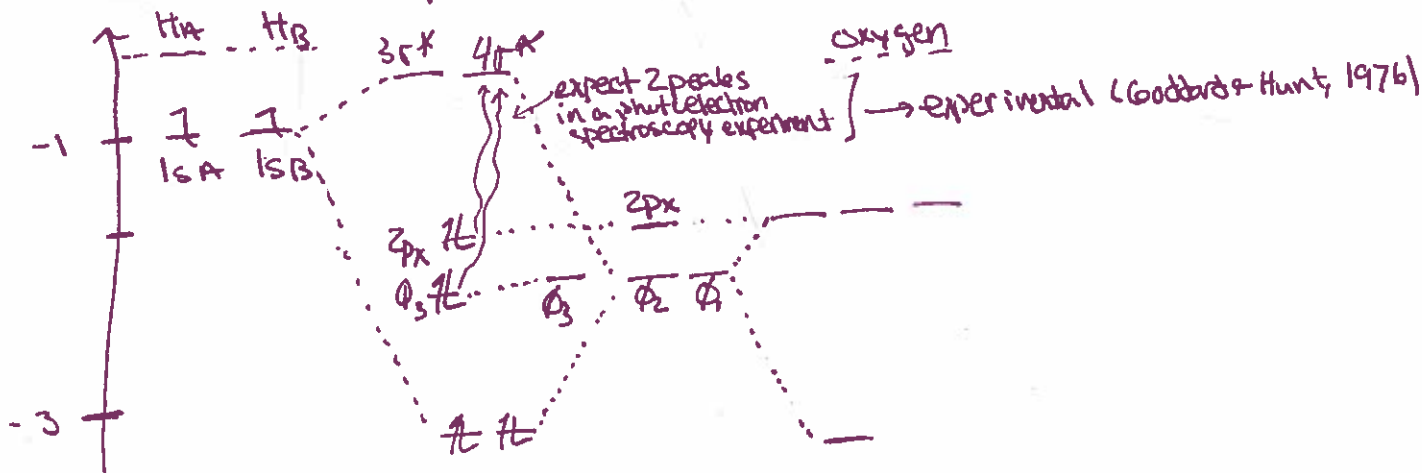 HA HB
3σ* 4σ*
oxygen
expect 2 peaks
in a photoelectron
spectroscopy experiment
→ experimental (Goddard + Hunt, 1976)
-1
1sA 1sB
2px
2px
ϕ3
ϕ3 ϕ2 ϕ1
-3